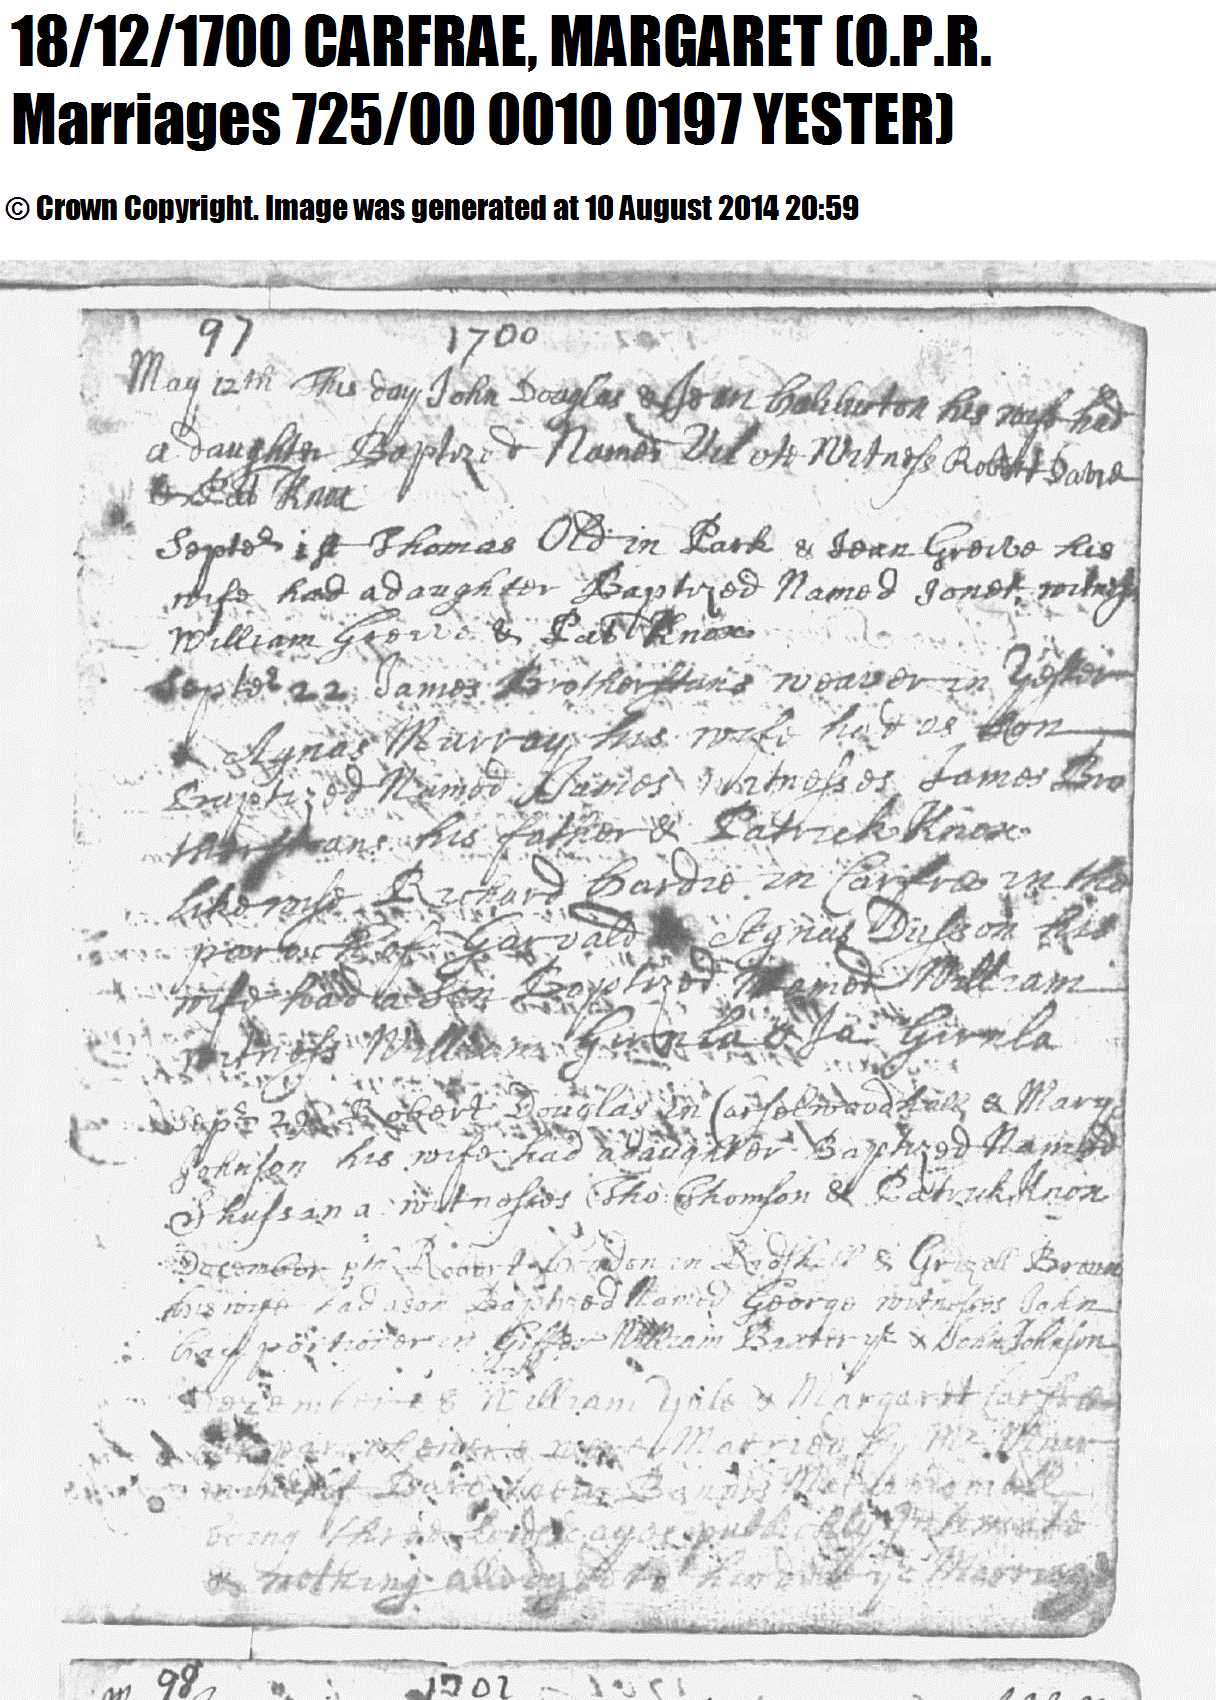 18/12/1700 CARFRAE, MARGARET (O.P.R.
Marriages 725/00 0010 0197 YESTER)
© Crown Copyright. Image was generated at 10 August 2014 20:59
97 1700
May 12th This day John Douglas & Jean Haliburton his wife had
a daughter Baptized Named Witness Robert David
& Pat Knox
Septer 1st Thomas Old in Park & Jean Greive his
wife had a daughter Baptized Named Jonet witness
William Greive & Pat Knox
Septer 22 James Brotherstans weaver in Yester
& Agnas Murray his wife had as son
Baptized Named James witnesses James Bro
therstans his father & Patrick Knox
likewise Richard Hardie in Carfrae in the
paroch of Garvald Agnas his
wife had a Son Baptized Named William
witness William Girnla & Ja: Girnla
Sept 29 Robert Douglas in Carfelwoodhall & Mary
Johnson his wife had a daughter Baptized Named
Shussana witnesses Tho: Thomson & Patrick Knox
December Robert in & Grizell Brown
his wife had a son Baptized Named George witnesses John
hay portioner in Giffer William Baxter yr & John Johnson
December 18 William Yule & Margaret Carfrae
were Married by Mr
Banns
being three Lords dayes publickly Intimate
& nothing alledged to hinder ye Marriage
98 1701